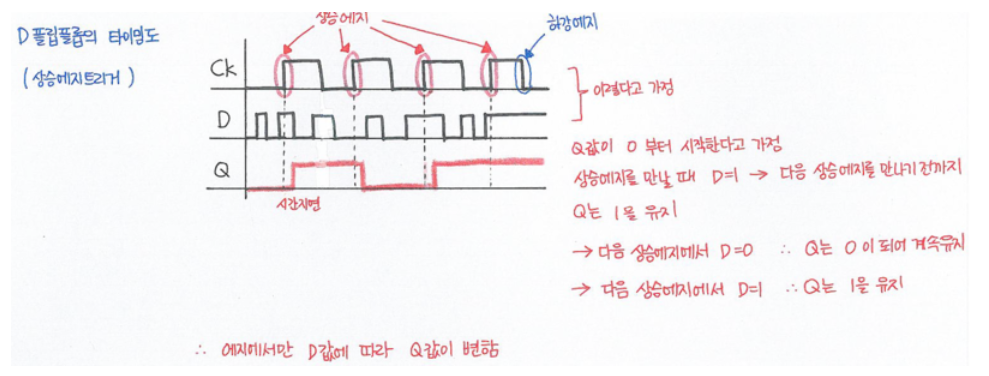 상승에지
하강에지
D 플립플롭의 타이밍도
(상승에지트리거)
Ck
D
Q
시간지연
이렇다고 가정
Q값이 0 부터 시작한다고 가정
상승에지를 만날 때 D=1 → 다음 상승에지를 만나기 전까지
Q는 1을 유지
→ 다음 상승에지에서 D=0 ∴ Q는 0이 되어 계속유지
→ 다음 상승에지에서 D=1 ∴ Q는 1을 유지
∴ 에지에서만 D값에 따라 Q값이 변함